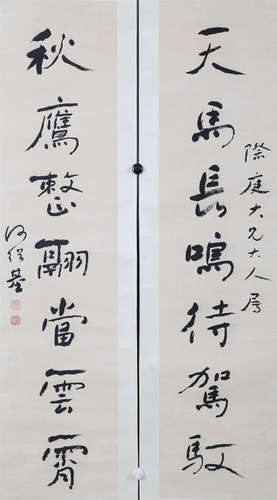 天馬長鳴待駕馭
際庭大兄大人属
秋鷹整翮當雲霄
何紹基